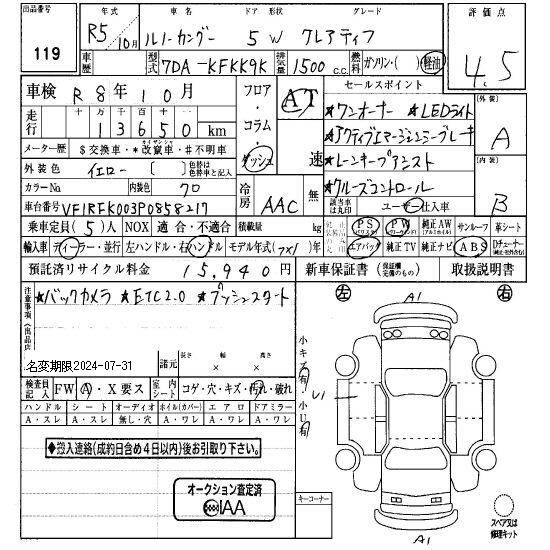 出品番号
119
年式 車名 ドア 形状 グレード
R5 10月 ルノーカングー 5W クレアティフ
車歴 型式 7DA-KFKK9K 排気量 1500 c.c. 燃料 ガソリン・( ) 軽油
評価点
4.5
車検 R8年10月
走行 十万千百十一
13650 km
メーター歴 $交換車・*改竄車・#不明車
カイザンシャ
外装色 イエロー [ ] 色替は色替車と記入
カラーNo 内装色 クロ
車台番号 VF1RFK003P0858217
フロア・コラム・ダッシュ
AT
速
冷房 AAC 無
セールスポイント
★ワンオーナー ★LEDライト
★アクティブエマージェンシーブレーキ
★レーンキープアシスト
★クルーズコントロール
該当車は丸印 ユーザー・仕入車
外装
A
内装
B
乗車定員 (5)人 NOX 適合・不適合 積載量 kg
PS パワステ PW 純正AW (アルミホイル) サンルーフ 革シート
輸入車 ディーラー・並行 左ハンドル・右ハンドル モデル年式
エアバッグ 純正TV 純正ナビ ABS
預託済リサイクル料金 15,940円
新車保証書 (保証欄完備のもの) 取扱説明書
注意事項 (出品店)
★バックカメラ ★ETC2.0 ★プッシュスタート
名変期限2024-07-31
諸元 長さ × 幅 × 高さ
検査員記入 FW A・X要ス 室内シート コゲ・穴・キズ・汚れ・破れ
ハンドル シート オーディオ ホイル(カバー) エアロ ドアミラー
A・スレ A・スレ 無し・穴 A・ワレ A・ワレ A・ワレ
◆搬入連絡(成約日含め4日以内)後お引取り下さい。
オークション査定済
IAA
左 A1 右
小キズ有・小U有
U1
キーコーナー
A1
スペア又は修理キット